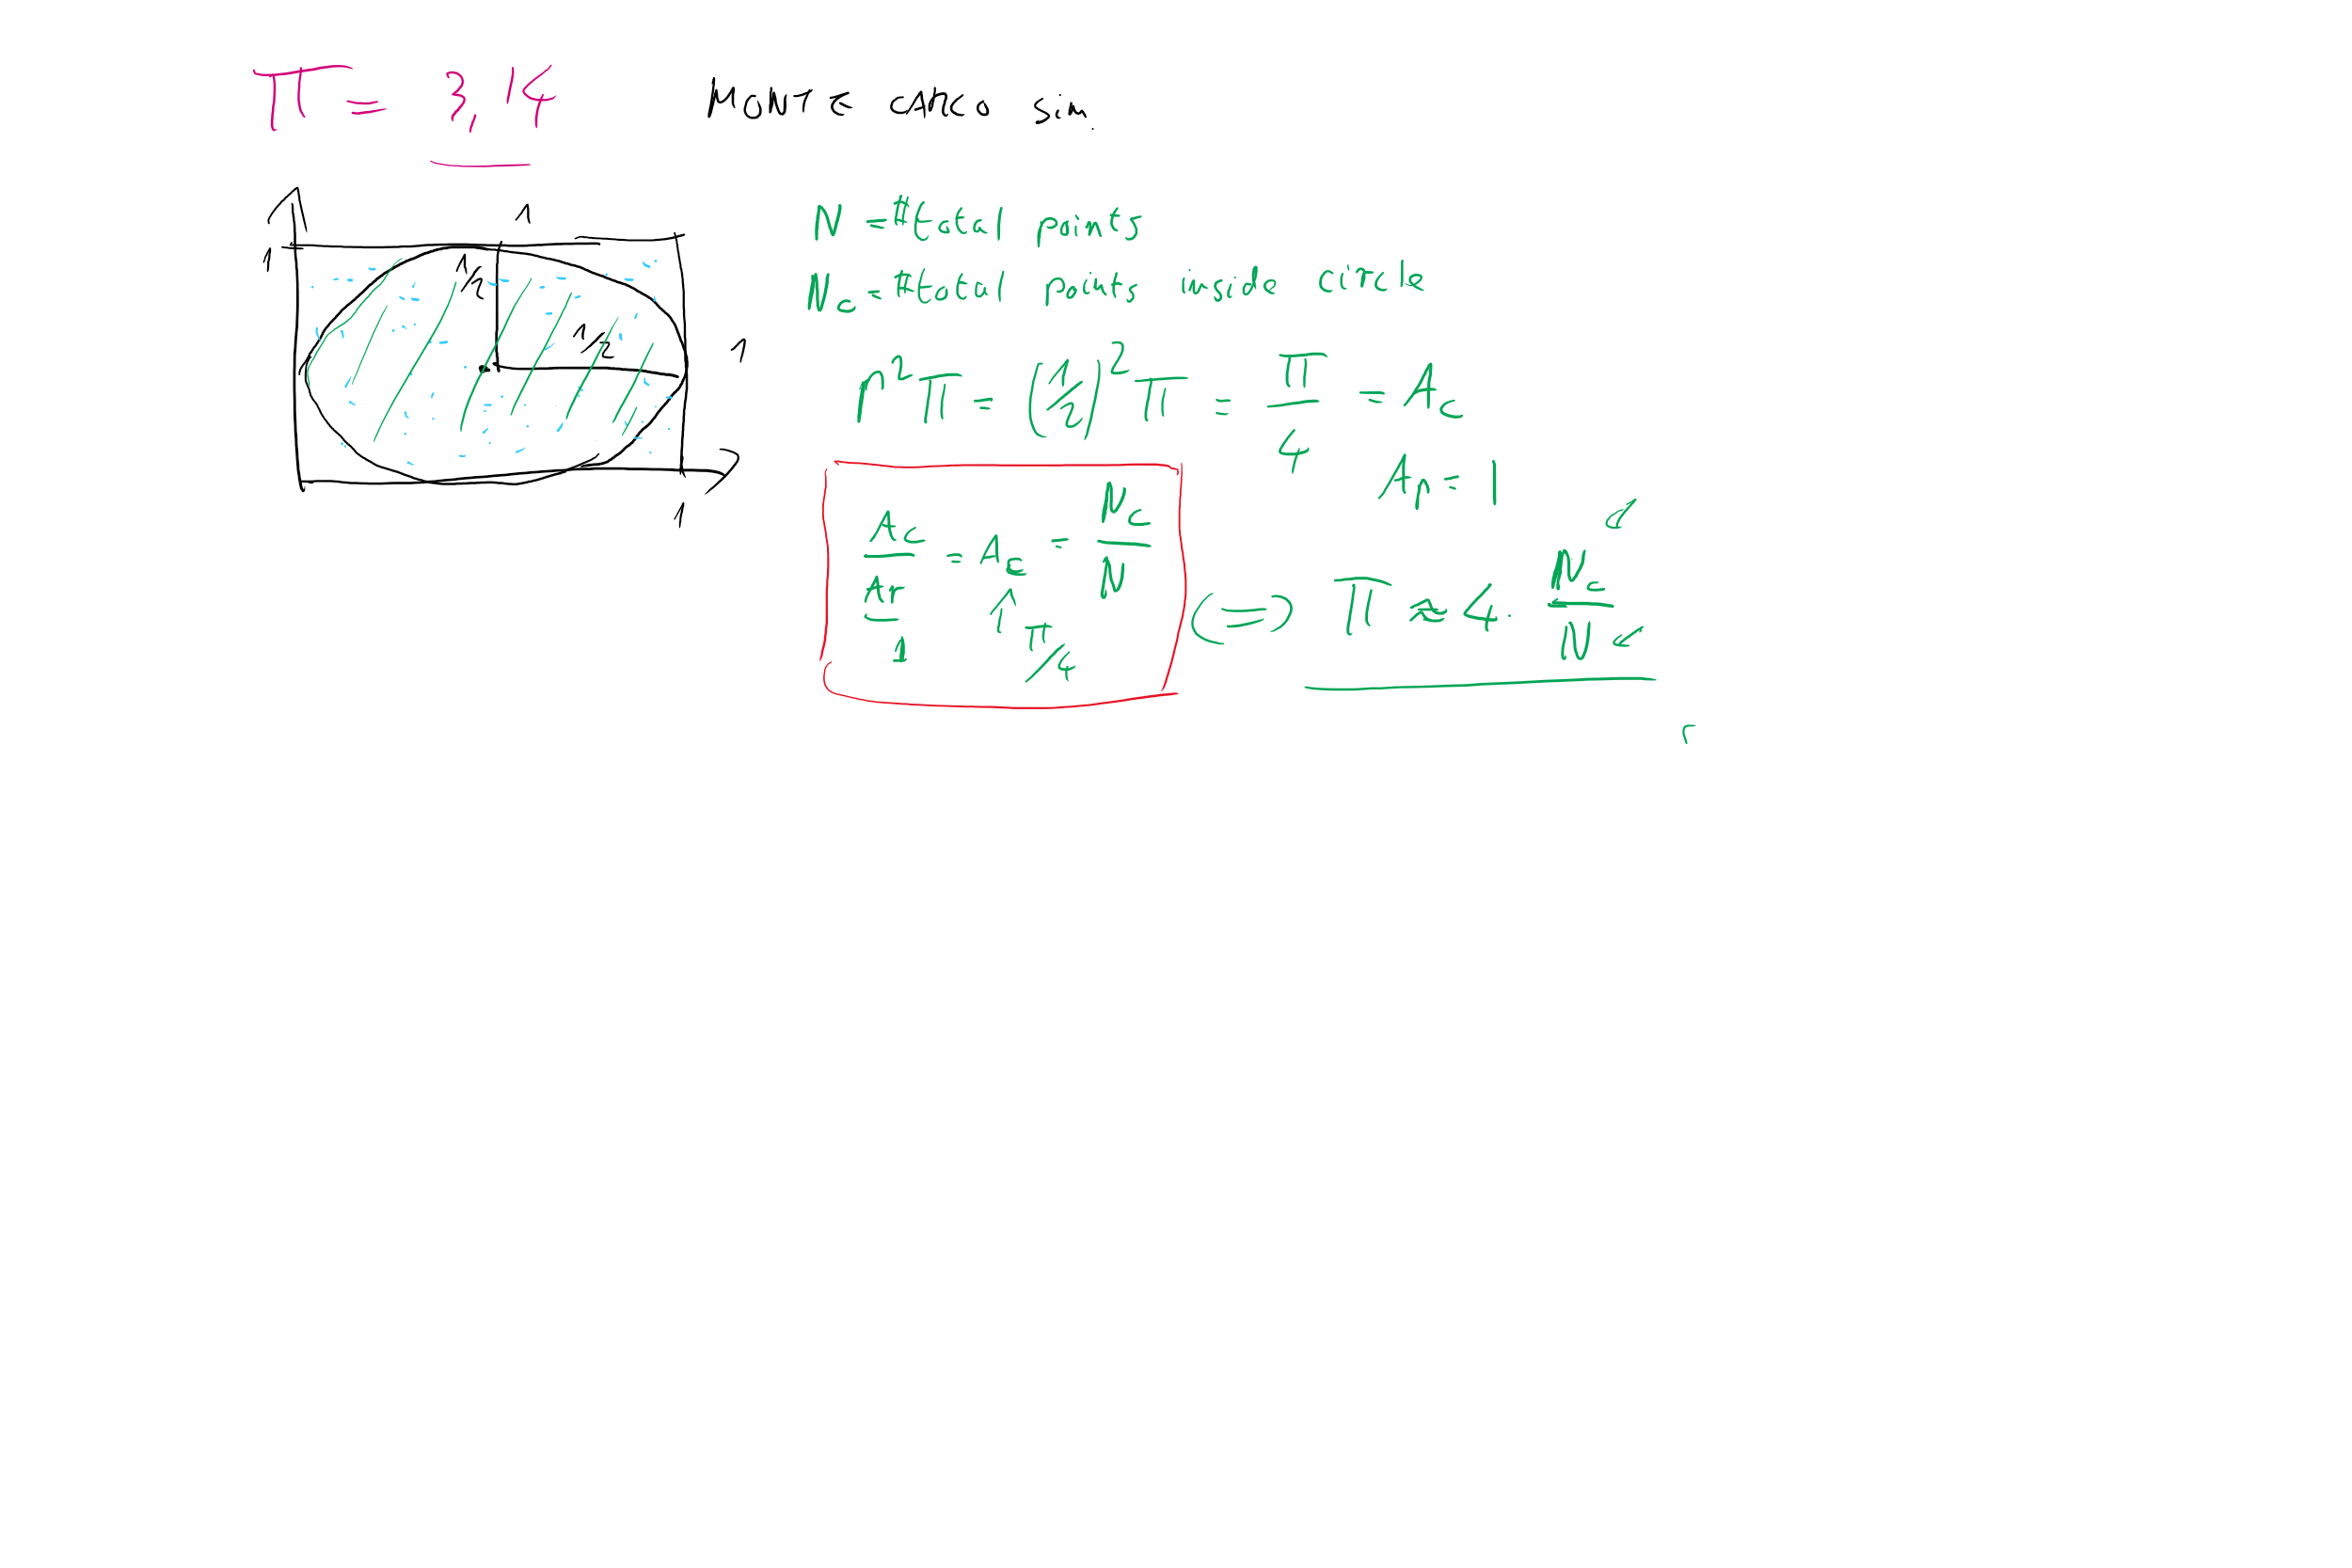 π = 3,14
MONTE CARLO sim.
1
1
1/2
1/2
1
1
N = #total points
Nc = #total points inside circle
r²π = (1/2)²π = π/4 = Ac
Ar = 1
Ac/Ar = Ac = Nc/N
1
π/4
(=) π ≈ 4 · Nc/N